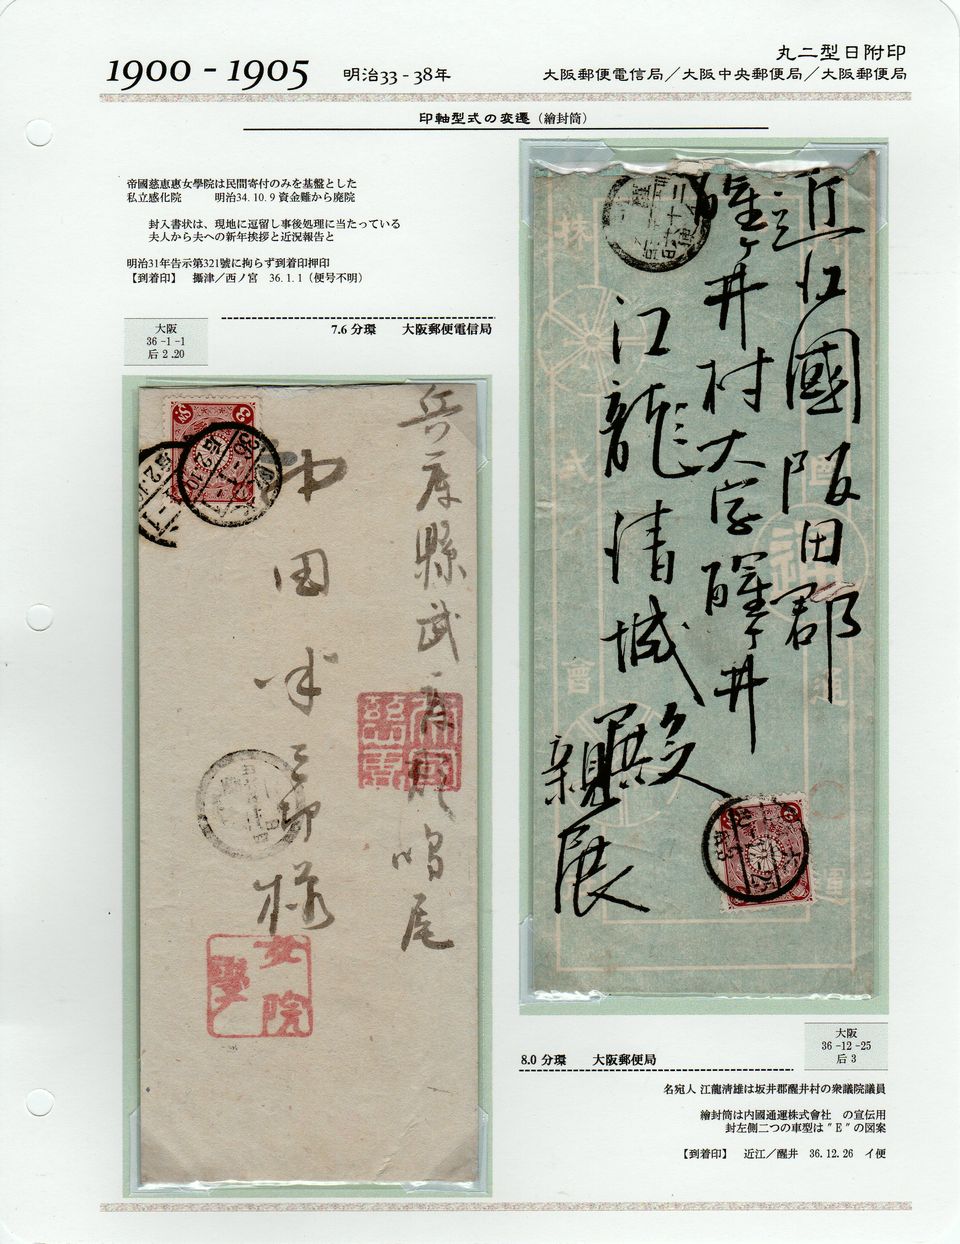 1900 - 1905 明治33 - 38年
丸二型日附印
大阪郵便電信局／大阪中央郵便局／大阪郵便局
印軸型式の変遷（繪封筒）
帝國慈恵惠女學院は民間寄付のみを基盤とした
私立感化院 明治34. 10. 9 資金難から廃院
封入書状は、現地に逗留し事後処理に当たっている
夫人から夫への新年挨拶と近況報告と
明治31年告示第321號に拘らず到着印押印
【到着印】 攝津／西ノ宮 36. 1. 1（便号不明）
大阪
36 -1 -1
后 2 .20
7.6 分環 大阪郵便電信局
兵庫縣武庫郡鳴尾
中田半三郎様
帝國
慈惠
女院
學
近江國阪田郡
醒ヶ井村大字醒ヶ井
江龍清城殿
親展
株
式
會
國
通
運
8.0 分環 大阪郵便局
大阪
36 -12 -25
后 3
名宛人 江龍清雄は坂井郡醒井村の衆議院議員
繪封筒は内國通運株式會社 の宣伝用
封左側二つの車型は "E" の図案
【到着印】 近江／醒井 36. 12. 26 イ便